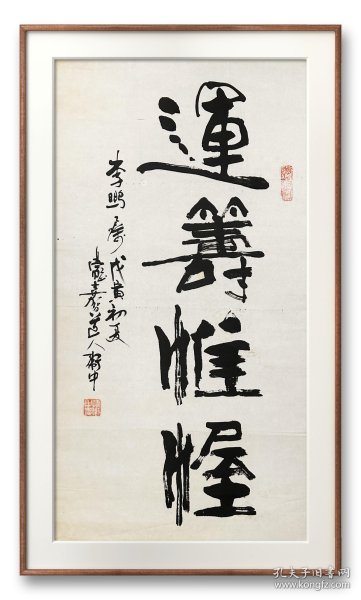 運籌帷幄
李鹏 戊寅初夏
道人 中
孔夫子旧书网
www.kongfz.com